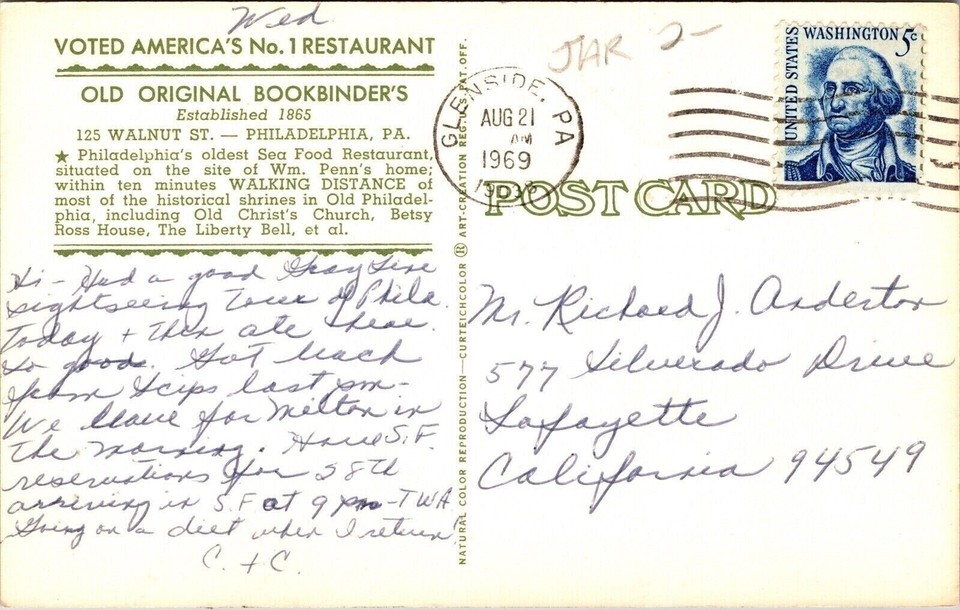 Wed
VOTED AMERICA'S No. 1 RESTAURANT
OLD ORIGINAL BOOKBINDER'S
Established 1865
125 WALNUT ST. — PHILADELPHIA, PA.
★ Philadelphia's oldest Sea Food Restaurant,
situated on the site of Wm. Penn's home;
within ten minutes WALKING DISTANCE of
most of the historical shrines in Old Philadel-
phia, including Old Christ's Church, Betsy
Ross House, The Liberty Bell, et al.
Hi - Had a good Gray Line
sightseeing tour of Phila.
today + then ate here.
So good. Got back
from last pm -
We leave for Melton in
the morning. Have S.F.
reservations for 28th
arriving in S.F at 9 pm - TWA
Going on a diet when I return
C. + C.
NATURAL COLOR REPRODUCTION—CURTEICHCOLOR ® ART-CREATION REG. U.S. PAT. OFF.
JAR 2-
GLENSIDE, PA
AUG 21
AM
1969
19038
UNITED STATES
WASHINGTON 5c
POST CARD
Mr. Richard J. Anderton
577 Silverado Drive
Lafayette
California 94549